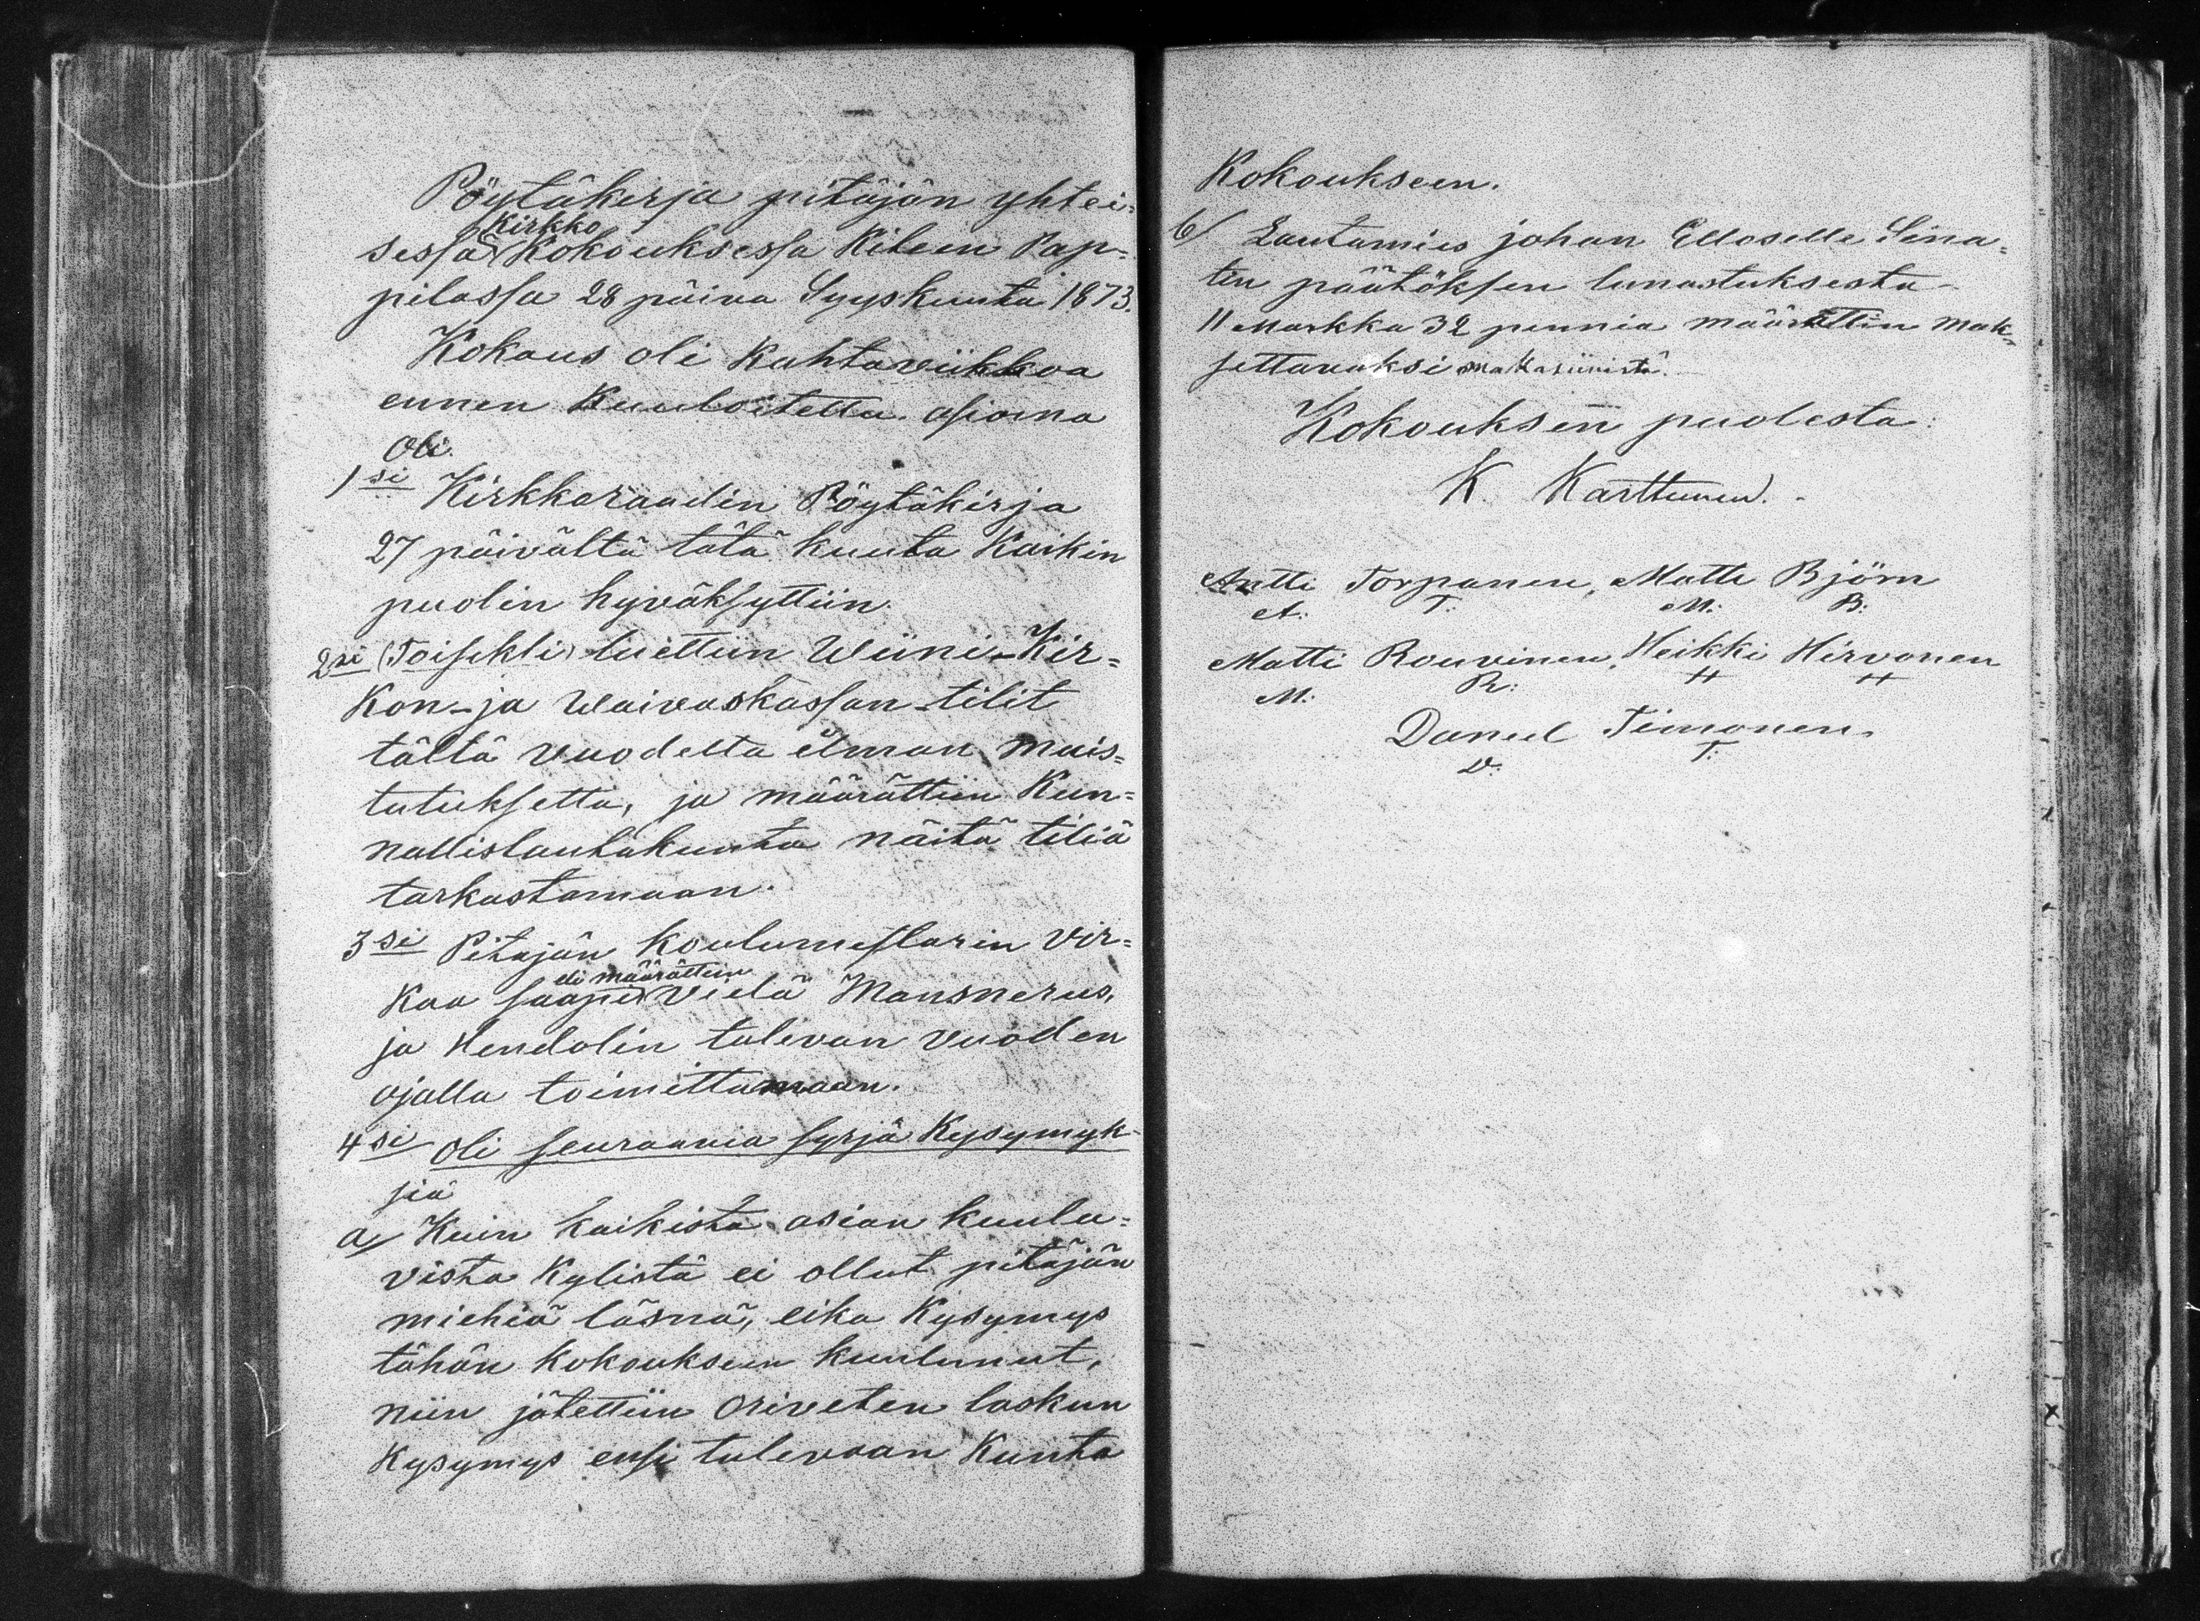 Pöytäkirja pitäjän yhtei=
Kirkko
sessä Kokouksessa Kiteen Pap=
pilassa 28 päiva Syyskuuta 1873.
Kokous oli Kahtaviikkoa
ennen Kuuloitettu. asiana
Oli.
1si Kirkkoraadin Pöytäkirja
27 päivältä tätä kuuta Kaikin
puolin hyväksyttiin.
2si (Toiseksi) luettiin Wiini-Kir=
Kon- ja Waivaskassan tilit
tältä vuodelta ilman muis=
tutuksetta, ja määrättiin Kun=
nallislautakunta näitä tiliä
tarkastamaan.
3si Pitäjän koulumestarin Vir=
eli määrättiin
Kaa saapi vielä Mansnerus,
ja Hendolin tulevan vuoden
ajalla toimittamaan.
4si Oli seuraavia syrjä Kysymyk-
siä
a/ Kuin kaikista asian kuulu=
vista Kylistä ei ollut pitäjän
miehiä läsnä, eikä Kysymys
tähän kokoukseen kuulunut,
niin jätettiin Oriveten laskun
Kysymys ensi tulevaan Kunta
Kokoukseen.
b/ Lautamies Johan Elloselle Sena=
tin päätöksen lunastuksesta
11 Markka 32 penniä määrättiin mak-
settavaksi makasiinista.
Kokouksen puolesta:
K Karttunen.
Antti Torpanen, Matti Björn
A. T. M. B.
Matti Rouvinen, Heikki Hirvonen
M. R. H H
Daniel Timonen.
D. T.